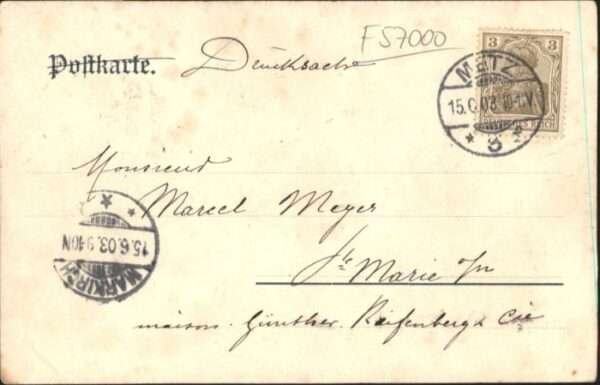 F57000
3
Postkarte. Drucksache
METZ
15.6.03.10-11V
* 3 *
Monsieur
Marcel Meyer
MARKIRCH
15.6.03.9-10N
Ste Marie a/m
maison. Günther. Reifenberg & Cie